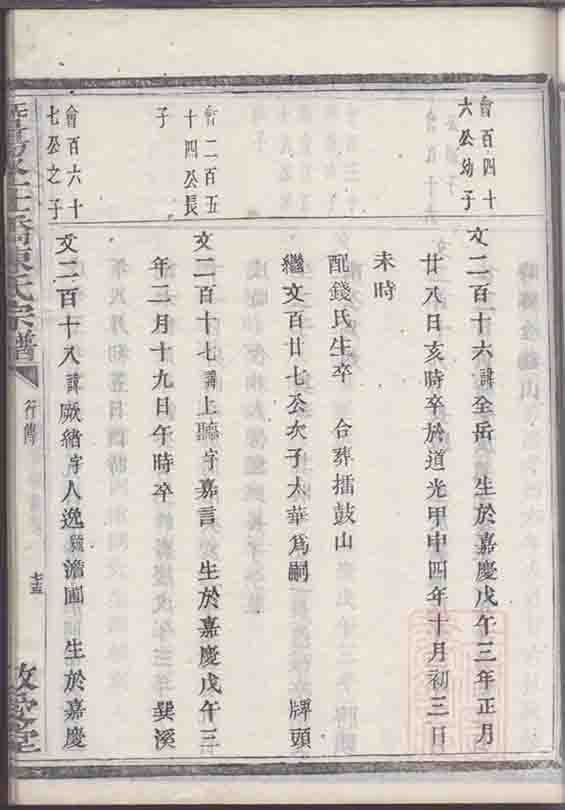 會百四十
六公幼子
文二百十六諱全岳 生於嘉慶戊午三年正月
廿八日亥時卒於道光甲申四年十月初三日
未時
配錢氏生卒 合葬擂鼓山
繼文百廿七公次子太華爲嗣 牌頭
會二百五
十四公長
子
文二百十七諱上聽字嘉言 生於嘉慶戊午三
年二月十九日午時卒 巽溪
會百六十
七公之子
文二百十八諱厥緒字人逸號澹圃 生於嘉慶
陳氏宗譜
行傳
敬愛堂